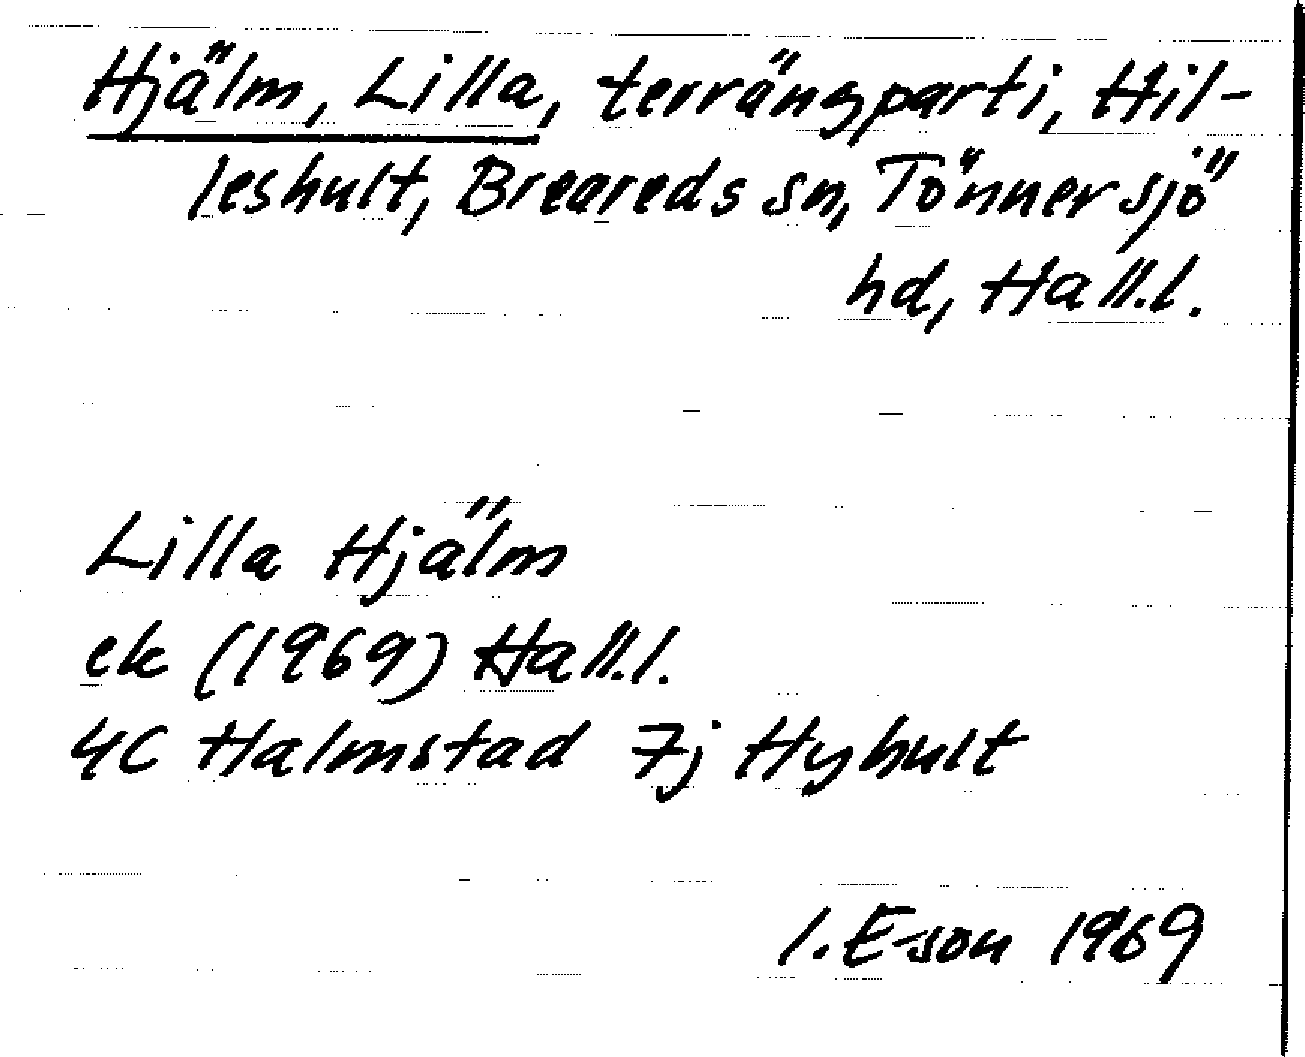 Hjälm, Lilla, terrängparti, Hil-
leshult, Breareds sn, Tönnersjö
hd, Hall.l.
Lilla Hjälm
ek (1969) Hall.l.
4C Halmstad 7j Hyhult
I. E-son 1969